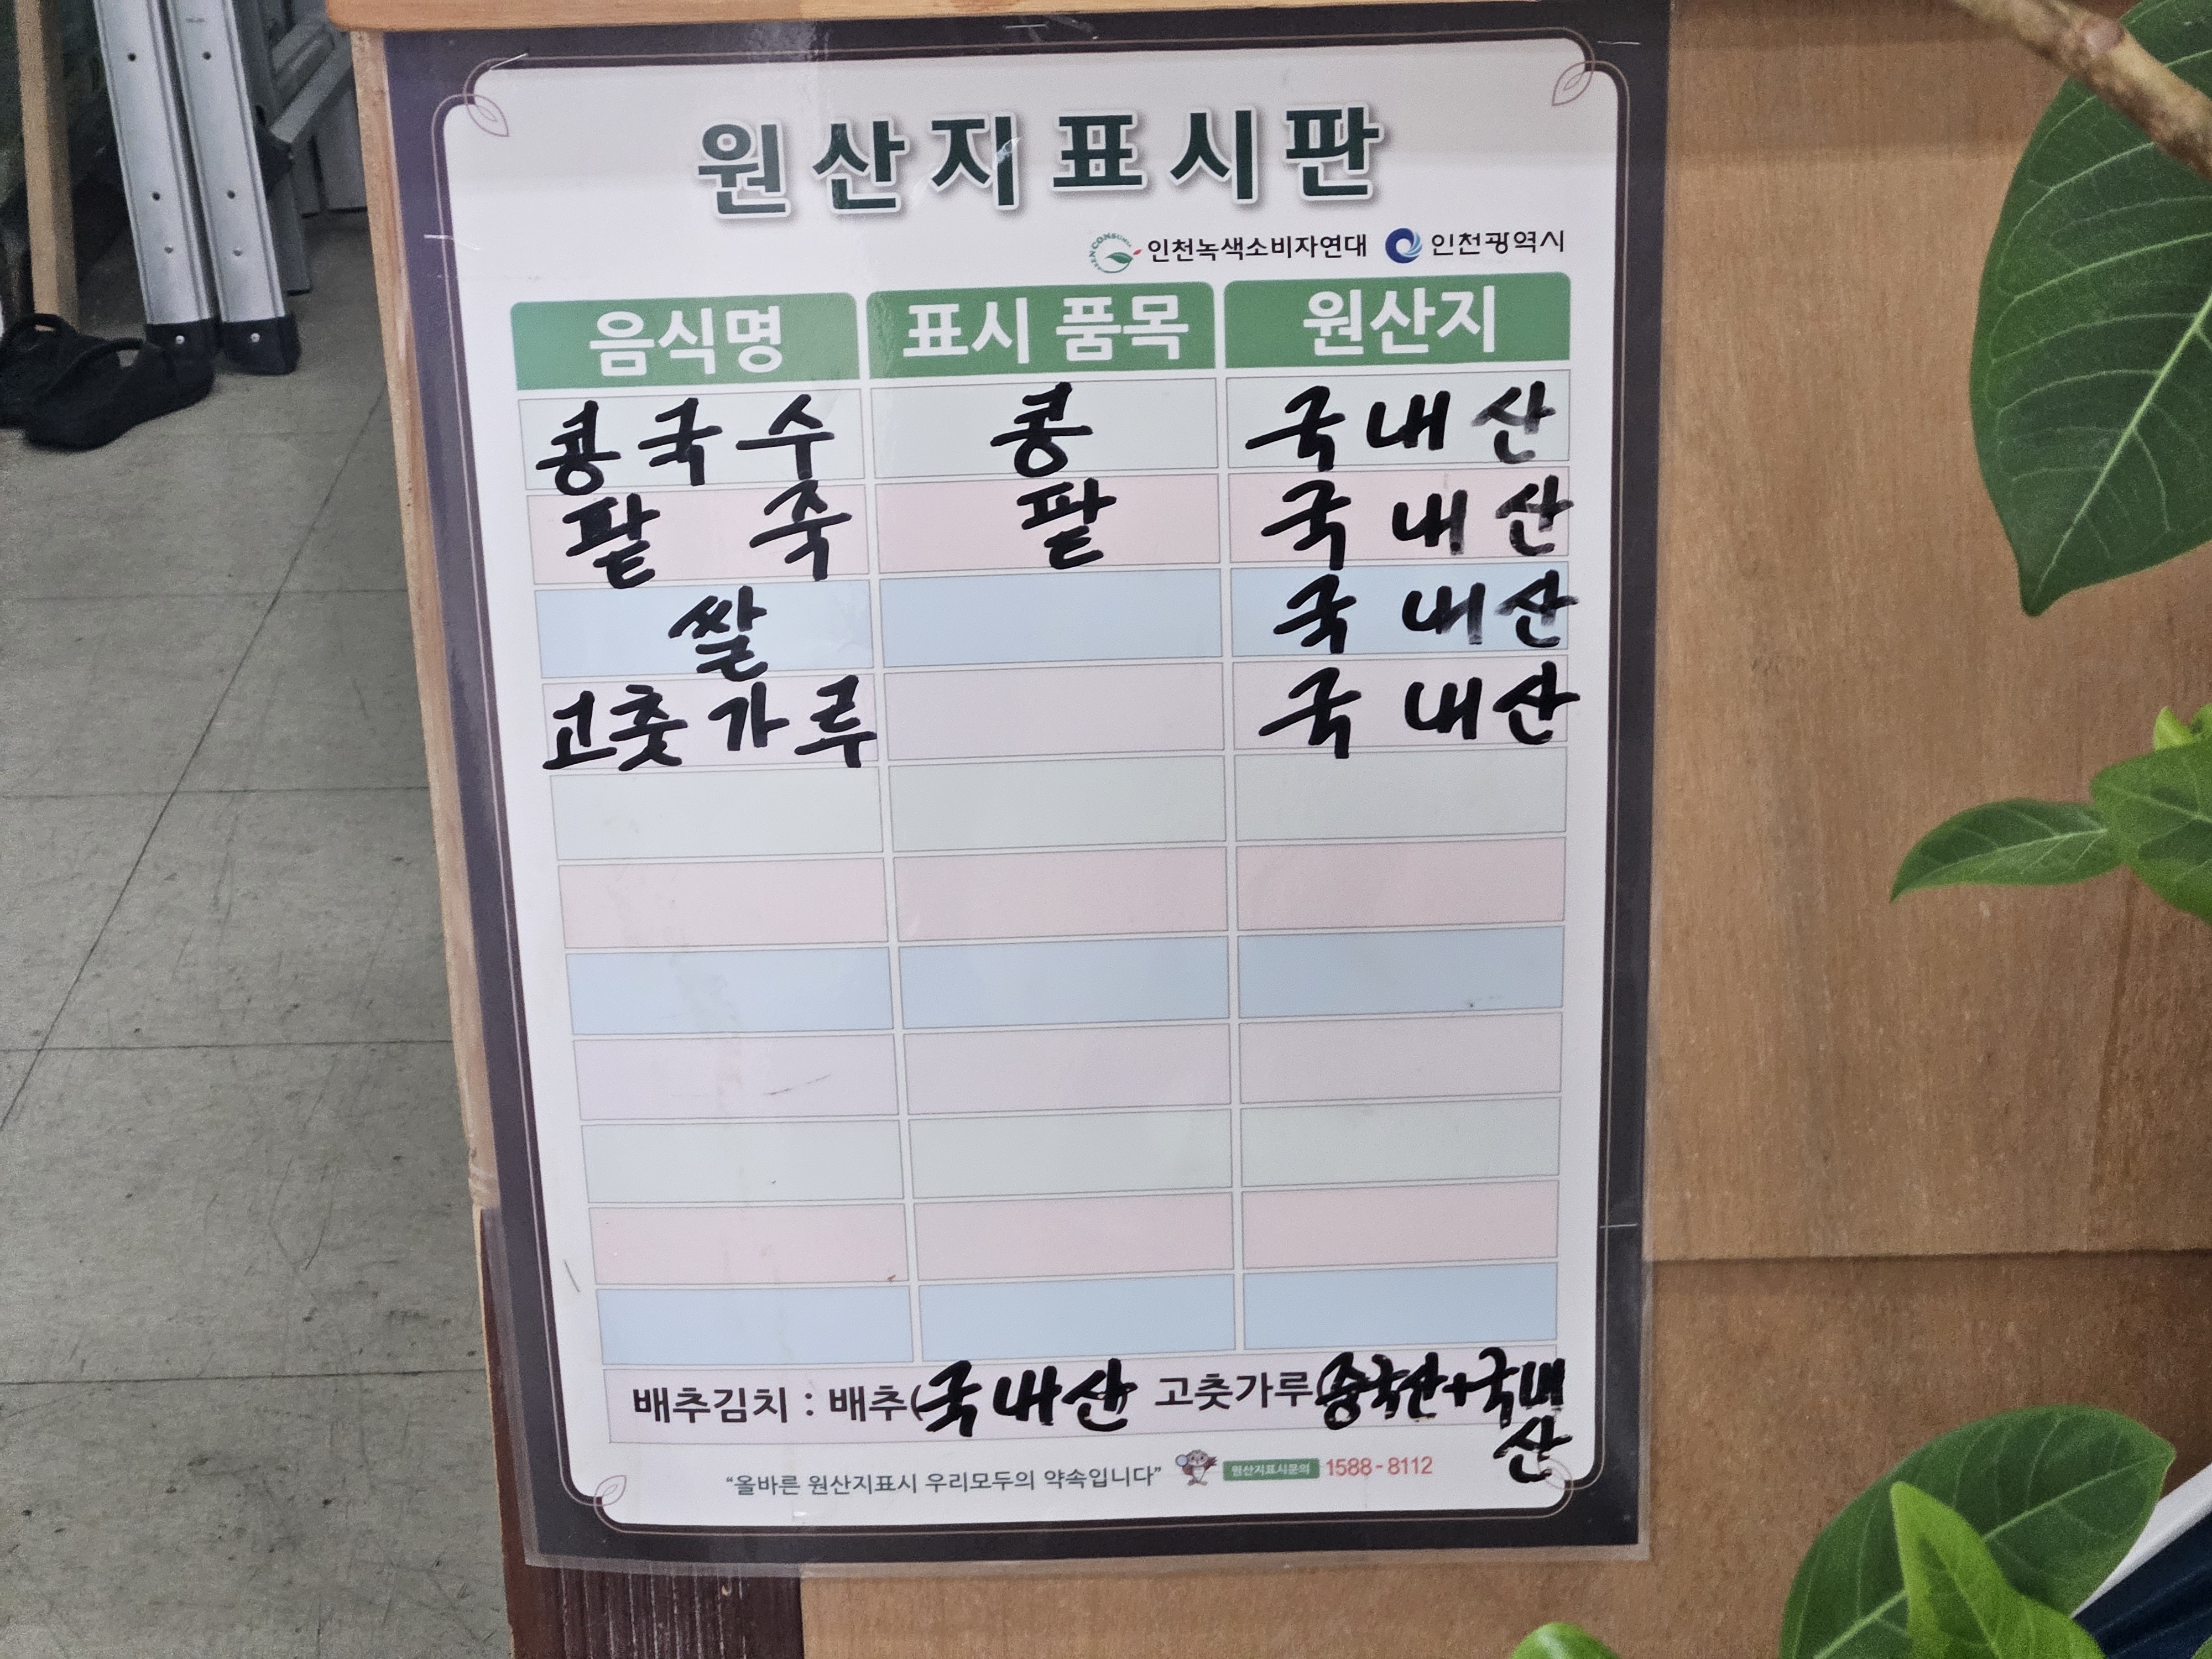 원산지표시판
인천녹색소비자연대 인천광역시
음식명 표시 품목 원산지
콩국수 콩 국내산
팥죽 팥 국내산
쌀 국내산
고춧가루 국내산
배추김치 : 배추(국내산 고춧가루(중국산+국내
산
“올바른 원산지표시 우리모두의 약속입니다” 원산지표시문의 1588-8112